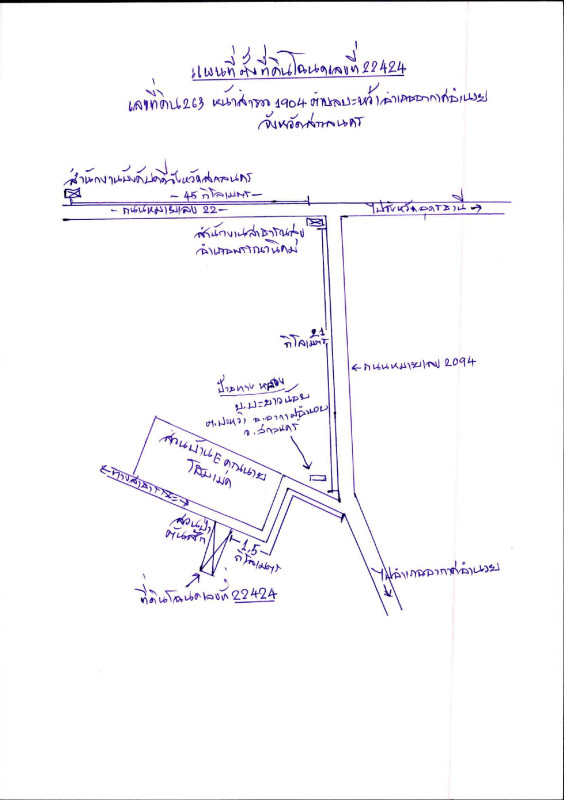 แผนที่ตั้งที่ดินโฉนดเลขที่ 22424
เลขที่ดิน 263 หน้าสำรวจ 1904 ตำบลบะหว้า อำเภออากาศอำนวย
จังหวัดสกลนคร
สำนักงานบังคับคดีจังหวัดสกลนคร
- 45 กิโลเมตร -
- ถนนหมายเลข 22 -
ไปจังหวัดอุดรธานี
สำนักงานสาธารณสุข
อำเภอพรรณานิคม
21
กิโลเมตร
ถนนหมายเลข 2094
ป้ายทางหลวง
ต.บะหว้า อ.อากาศอำนวย
จ.สกลนคร
สวนบ้าน
ทางสาธารณะ
สวนป่า
ต้นสัก
1.5
กิโลเมตร
ไปอำเภออากาศอำนวย
ที่ดินโฉนดเลขที่ 22424